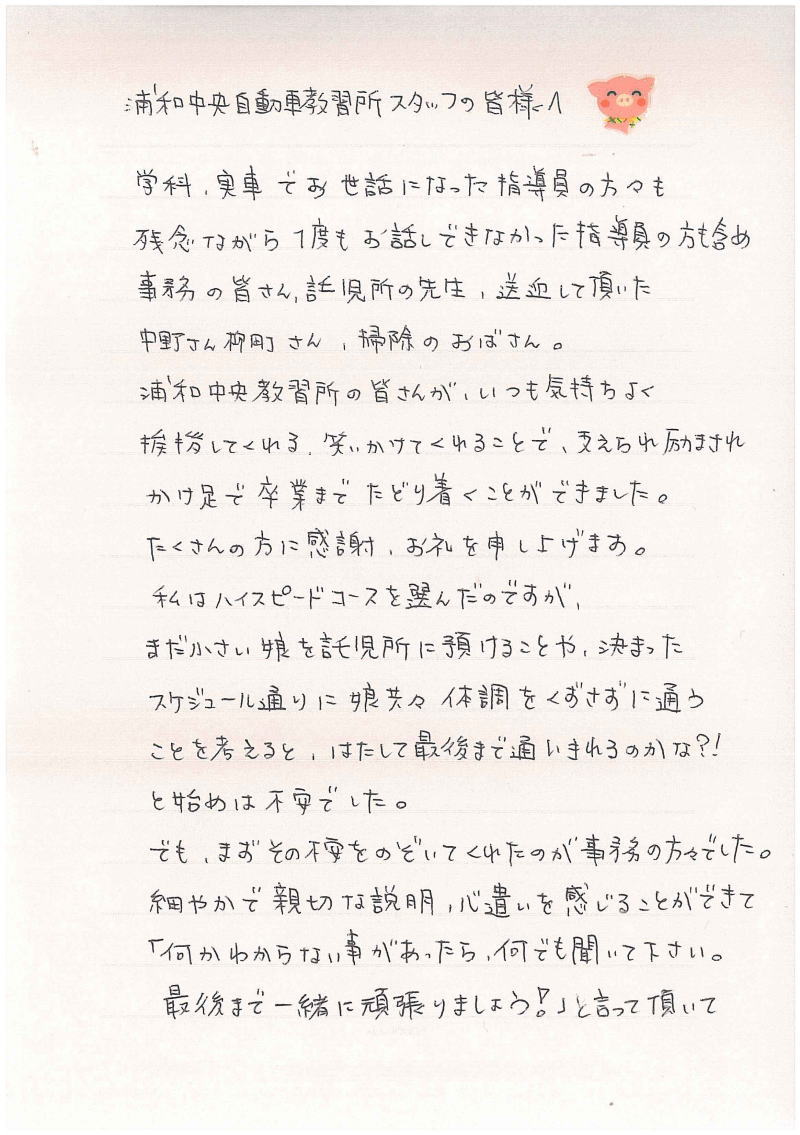 浦和中央自動車教習所スタッフの皆様へ
学科、実車でお世話になった指導員の方々も
残念ながら1度もお話しできなかった指導員の方も含め
事務の皆さん、託児所の先生、送迎して頂いた
中野さん柳町さん、掃除のおばさん。
浦和中央教習所の皆さんが、いつも気持ちよく
挨拶してくれる、笑いかけてくれることで、支えられ励まされ
かけ足で卒業までたどり着くことができました。
たくさんの方に感謝、お礼を申し上げます。
私はハイスピードコースを選んだのですが、
まだ小さい娘を託児所に預けることや、決まった
スケジュール通りに娘共々体調をくずさずに通う
ことを考えると、はたして最後まで通いきれるのかな?!
と始めは不安でした。
でも、まずその不安をのぞいてくれたのが事務の方々でした。
細やかで親切な説明、心遣いを感じることができて
「何かわからない事があったら、何でも聞いて下さい。
最後まで一緒に頑張りましょう!」と言って頂いて